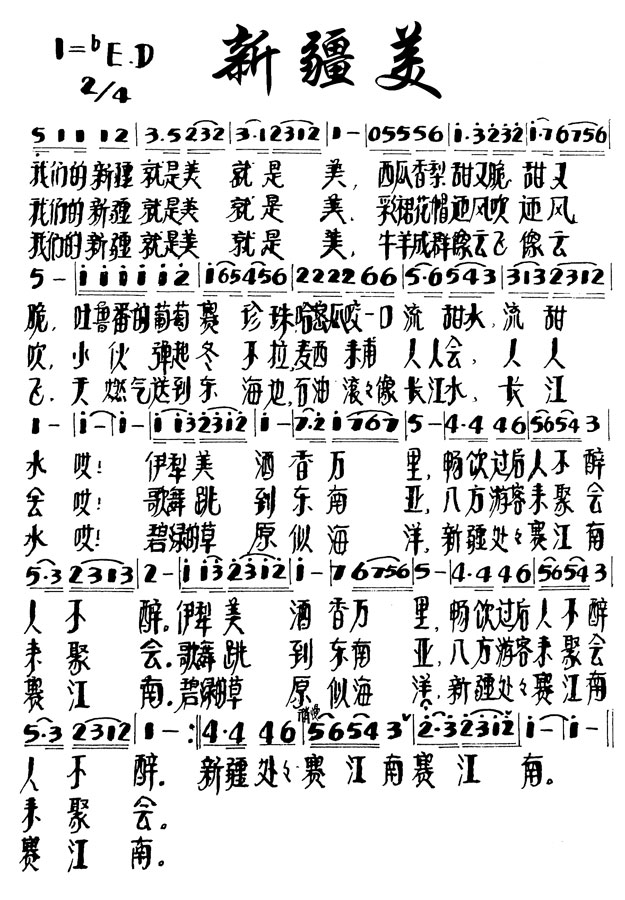 1=♭E.D 新疆美
2/4
5 1 1 1 2 | 3.5 2 3 2 | 3.1 2 3 1 2 | 1 - | 0 5 5 5 5 6 | 1.3 2 3 2 | 1.7 6 7 5 6 |
我们的新疆就是美 就是 美, 西瓜香梨甜又脆 甜又
我们的新疆就是美 就是 美. 彩裙花帽迎风吹 迎风
我们的新疆就是美 就是 美, 牛羊成群像云飞 像云
5 - | 1 1 1 1 1 2 | 1 6 5 4 5 6 | 2 2 2 2 6 6 | 5.6 5 4 3 | 3 1 3 2 3 1 2 |
脆, 吐鲁番的葡萄赛珍珠哈密瓜咬一口流甜水, 流甜
吹, 小伙弹起冬不拉,麦西来甫人人会, 人人
飞. 天燃气送到东海边,石油滚々像长江水, 长江
1 - | 1 - | 1 - | 1 1 3 2 3 1 2 | 1 - | 7.2 1 7 6 7 | 5 - | 4.4 4 6 | 5 6 5 4 3 |
水哎! 伊犁美酒香万里, 畅饮过后人不醉
会哎! 歌舞跳到东南亚, 八方游客来聚会
水哎! 碧绿的草原似海洋, 新疆处々赛江南
5.3 2 3 1 3 | 2 - | 1 1 3 2 3 1 2 | 1 - | 7 6 7 5 6 | 5 - | 4.4 4 6 | 5 6 5 4 3 |
人不醉. 伊犁美酒香万里, 畅饮过后人不醉
来聚会. 歌舞跳到东南亚, 八方游客来聚会
赛江南. 碧绿的草原似海洋, 新疆处々赛江南
稍慢
5.3 2 3 1 2 | 1 - :‖ 4.4 4 6 | 5 6 5 4 3 | 2.3 2 3 1 2 | 1 - | 1 - ‖
人不醉. 新疆处々赛江南赛江南.
来聚会.
赛江南.